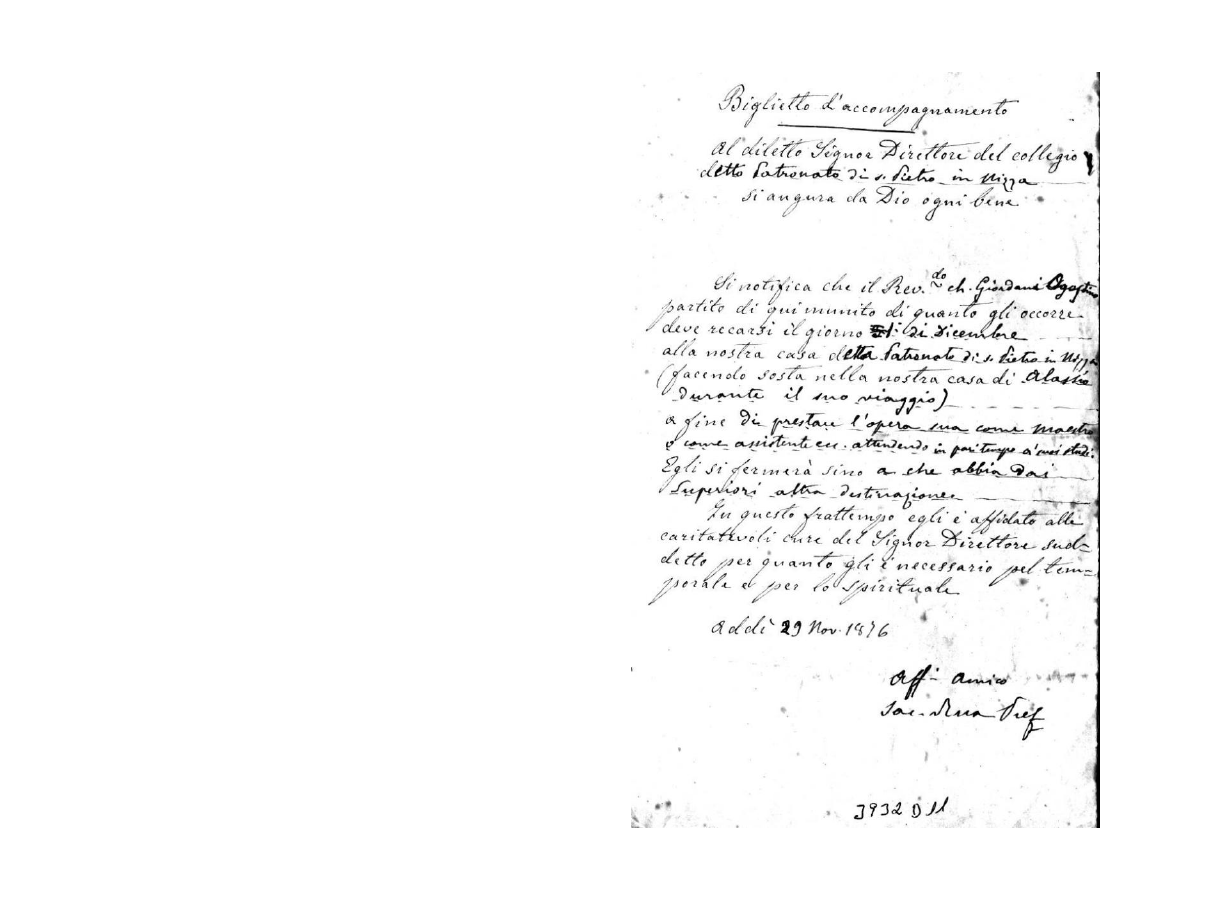 Biglietto d'accompagnamento
Al diletto Signor Direttore del collegio
detto Patronato di s. Pietro in Nizza
si augura da Dio ogni bene
Si notifica che il Rev.do ch. Giordani Agostino
partito di qui munito di quanto gli occorre
deve recarsi il giorno di Dicembre
alla nostra casa detta Patronato di s. Pietro in Nizza
(facendo sosta nella nostra casa di Alassio
durante il suo viaggio)
a fine di prestare l'opera sua come maestro
o come assistente ecc. attendendo in pari tempo a' suoi studi.
Egli si fermerà sino a che abbia dai
Superiori altra destinazione
In questo frattempo egli è affidato alle
caritatevoli cure del Signor Direttore sud=
detto per quanto gli è necessario pel tem=
porale e per lo spirituale
Addì 29 Nov. 1876
Aff. Amico
Sac. Pref
3932 D 11